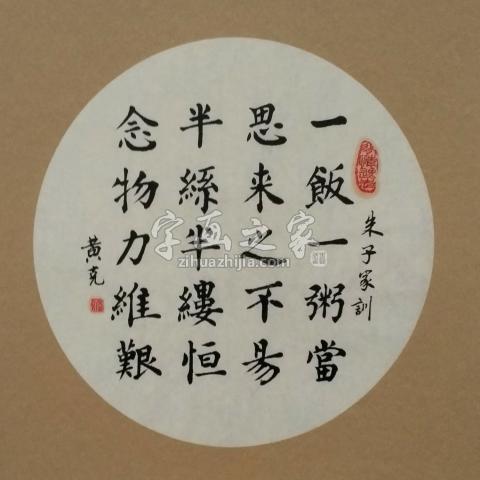 朱子家訓
一飯一粥當
思来之不易
半絲半縷恒
念物力維艱
黄克
字画之家
zihuazhijia.com